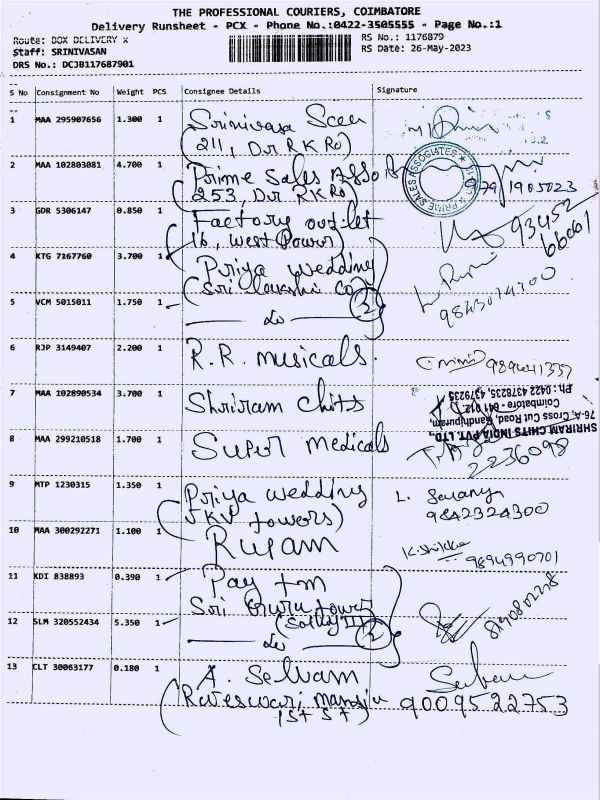 THE PROFESSIONAL COURIERS, COIMBATORE
Delivery Runsheet - PCX - Phone No.:0422-3505555 - Page No.:1
Route: BOX DELIVERY X
RS No.: 1176879
Staff: SRINIVASAN
RS Date: 26-May-2023
DRS No.: DCJB117687901
S No Consignment No Weight PCS Consignee Details Signature
1 MAA 295907656 1.300 1 Srinivasa
(211, Dr R K Rd)
2 MAA 102803081 4.700 1 Prime Sales Asso
253, Dr R K Rd
PRIME SALES ASSOCIATES
3 GDR 5306147 0.850 1 Factory outlet
16, West Power) 93452
66061
4 KTG 7167760 3.700 1 Priya wedding
(Sri Lakshmi Co) 9843014700
5 VCM 5015011 1.750 1 do 2
6 RJP 3149407 2.200 1 R.R. musicals.
7 MAA 102890534 3.700 1 Shriram chits
SHRIRAM CHITS INDIA PVT. LTD.,
76-A, Cross Cut Road, Gandhipuram,
Coimbatore - 641 012.
Ph : 0422 4378235, 4379235
8 MAA 299210518 1.700 1 Super medicals
2236098
9 MTP 1230315 1.350 1 Priya wedding L. Saranya
JKV towers) 9842324300
10 MAA 300292271 1.100 1 Rupam
9894990701
11 KDI 838893 0.390 1 Pay tm
Sri Guru tower 8190802278
12 SLM 320552434 5.350 1 do 2
13 CLT 30063177 0.180 1 A. Selvam
(Rajeswari 1st St) 9009522753